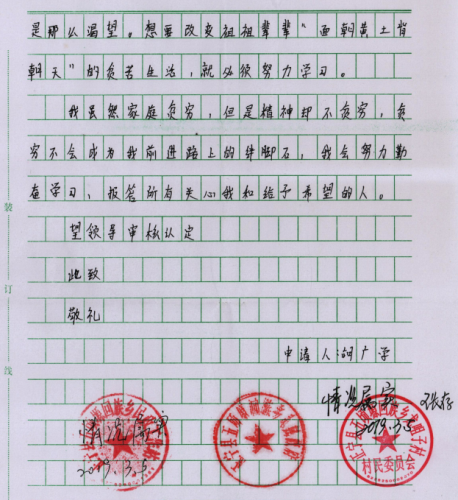 是那么渴望。想要改变祖祖辈辈“面朝黄土背
朝天”的贫苦生活，就必须努力学习。
我虽然家庭贫穷，但是精神却不贫穷，贫
穷不会成为我前进路上的绊脚石，我会努力勤
奋学习、报答所有关心我和给予希望的人。
望领导审核认定
此致
敬礼
装
订
线
申请人：
广学
情况属实
2019.3.5
情况属实
2019.3.5
村民委员会